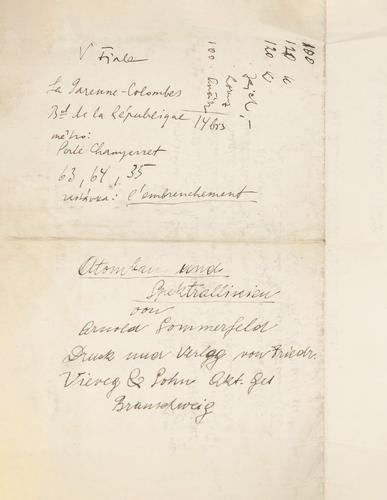 V Fiala
La Garenne-Colombes
Bd de la République 14bis
métro:
Porte Champerret
63, 64, 35
zastávka: l'embrenchement
100
120 K
120 K
100
Atombau und
Spektrallinien
von
Arnold Sommerfeld
Druck und Verlag von Friedr.
Vieweg & Sohn Akt. Ges
Braunschweig